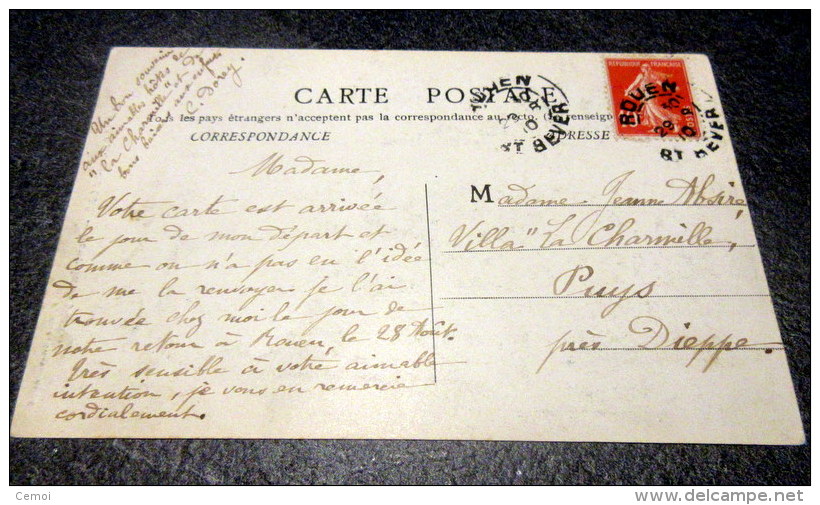 Un bon souvenir
aux aimables hôtes de
"la Charmille" et de
bons baisers aux
C. Dorey.
CARTE POSTALE
Tous les pays étrangers n'acceptent pas la correspondance au recto. (Se renseign
CORRESPONDANCE
ADRESSE
RÉPUBLIQUE FRANÇAISE
ROUEN
ST SEVER
ROUEN
ST SEVER
Madame,
Votre carte est arrivée
le jour de mon départ et
comme on n'a pas eu l'idée
de me la renvoyer je l'ai
trouvée chez moi le jour de
notre retour à Rouen, le 28 Août.
Très sensible à votre aimable
intention, je vous en remercie
cordialement.
Madame Jeanne Absire
Villa "La Charmille,
Puys
près Dieppe.
Cemoi
www.delcampe.net